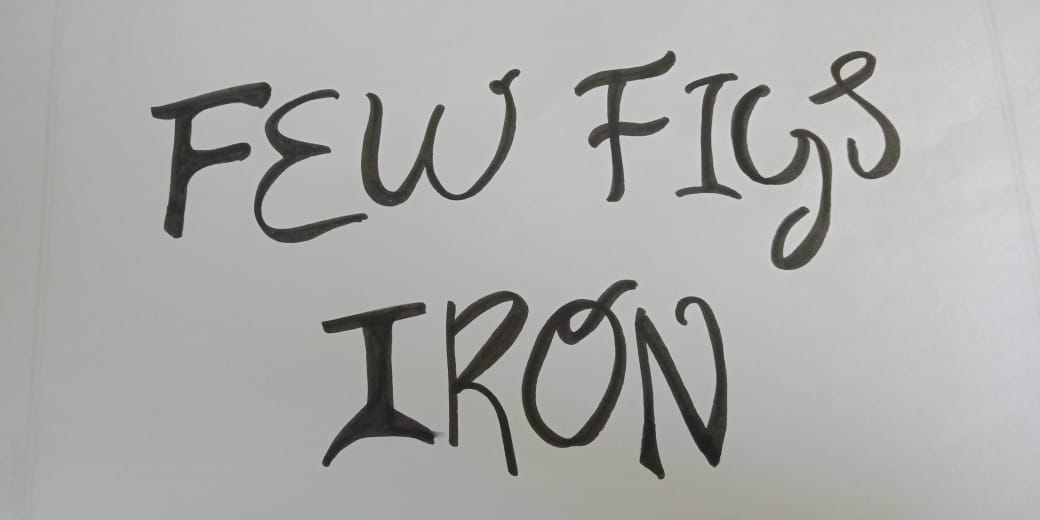 FEW FIGS
IRON